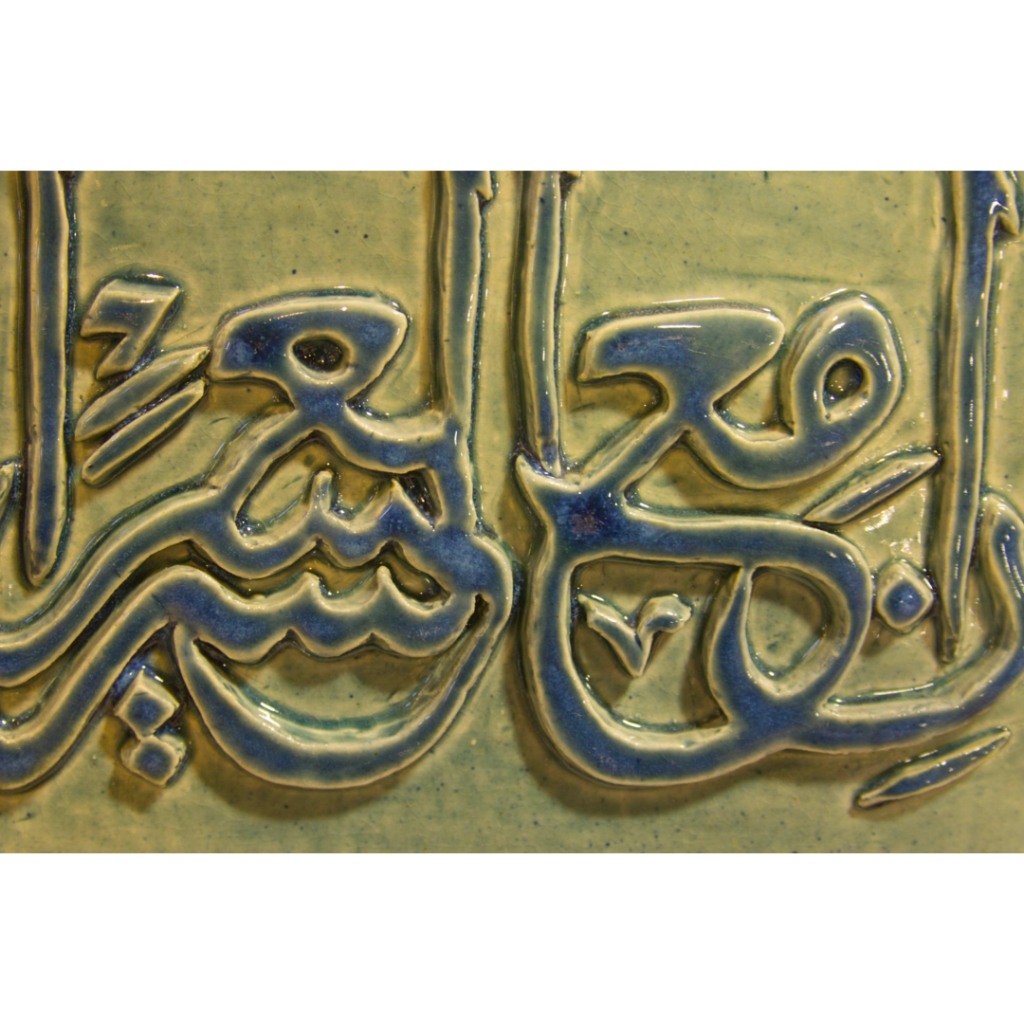 إن مع العسر يسرا